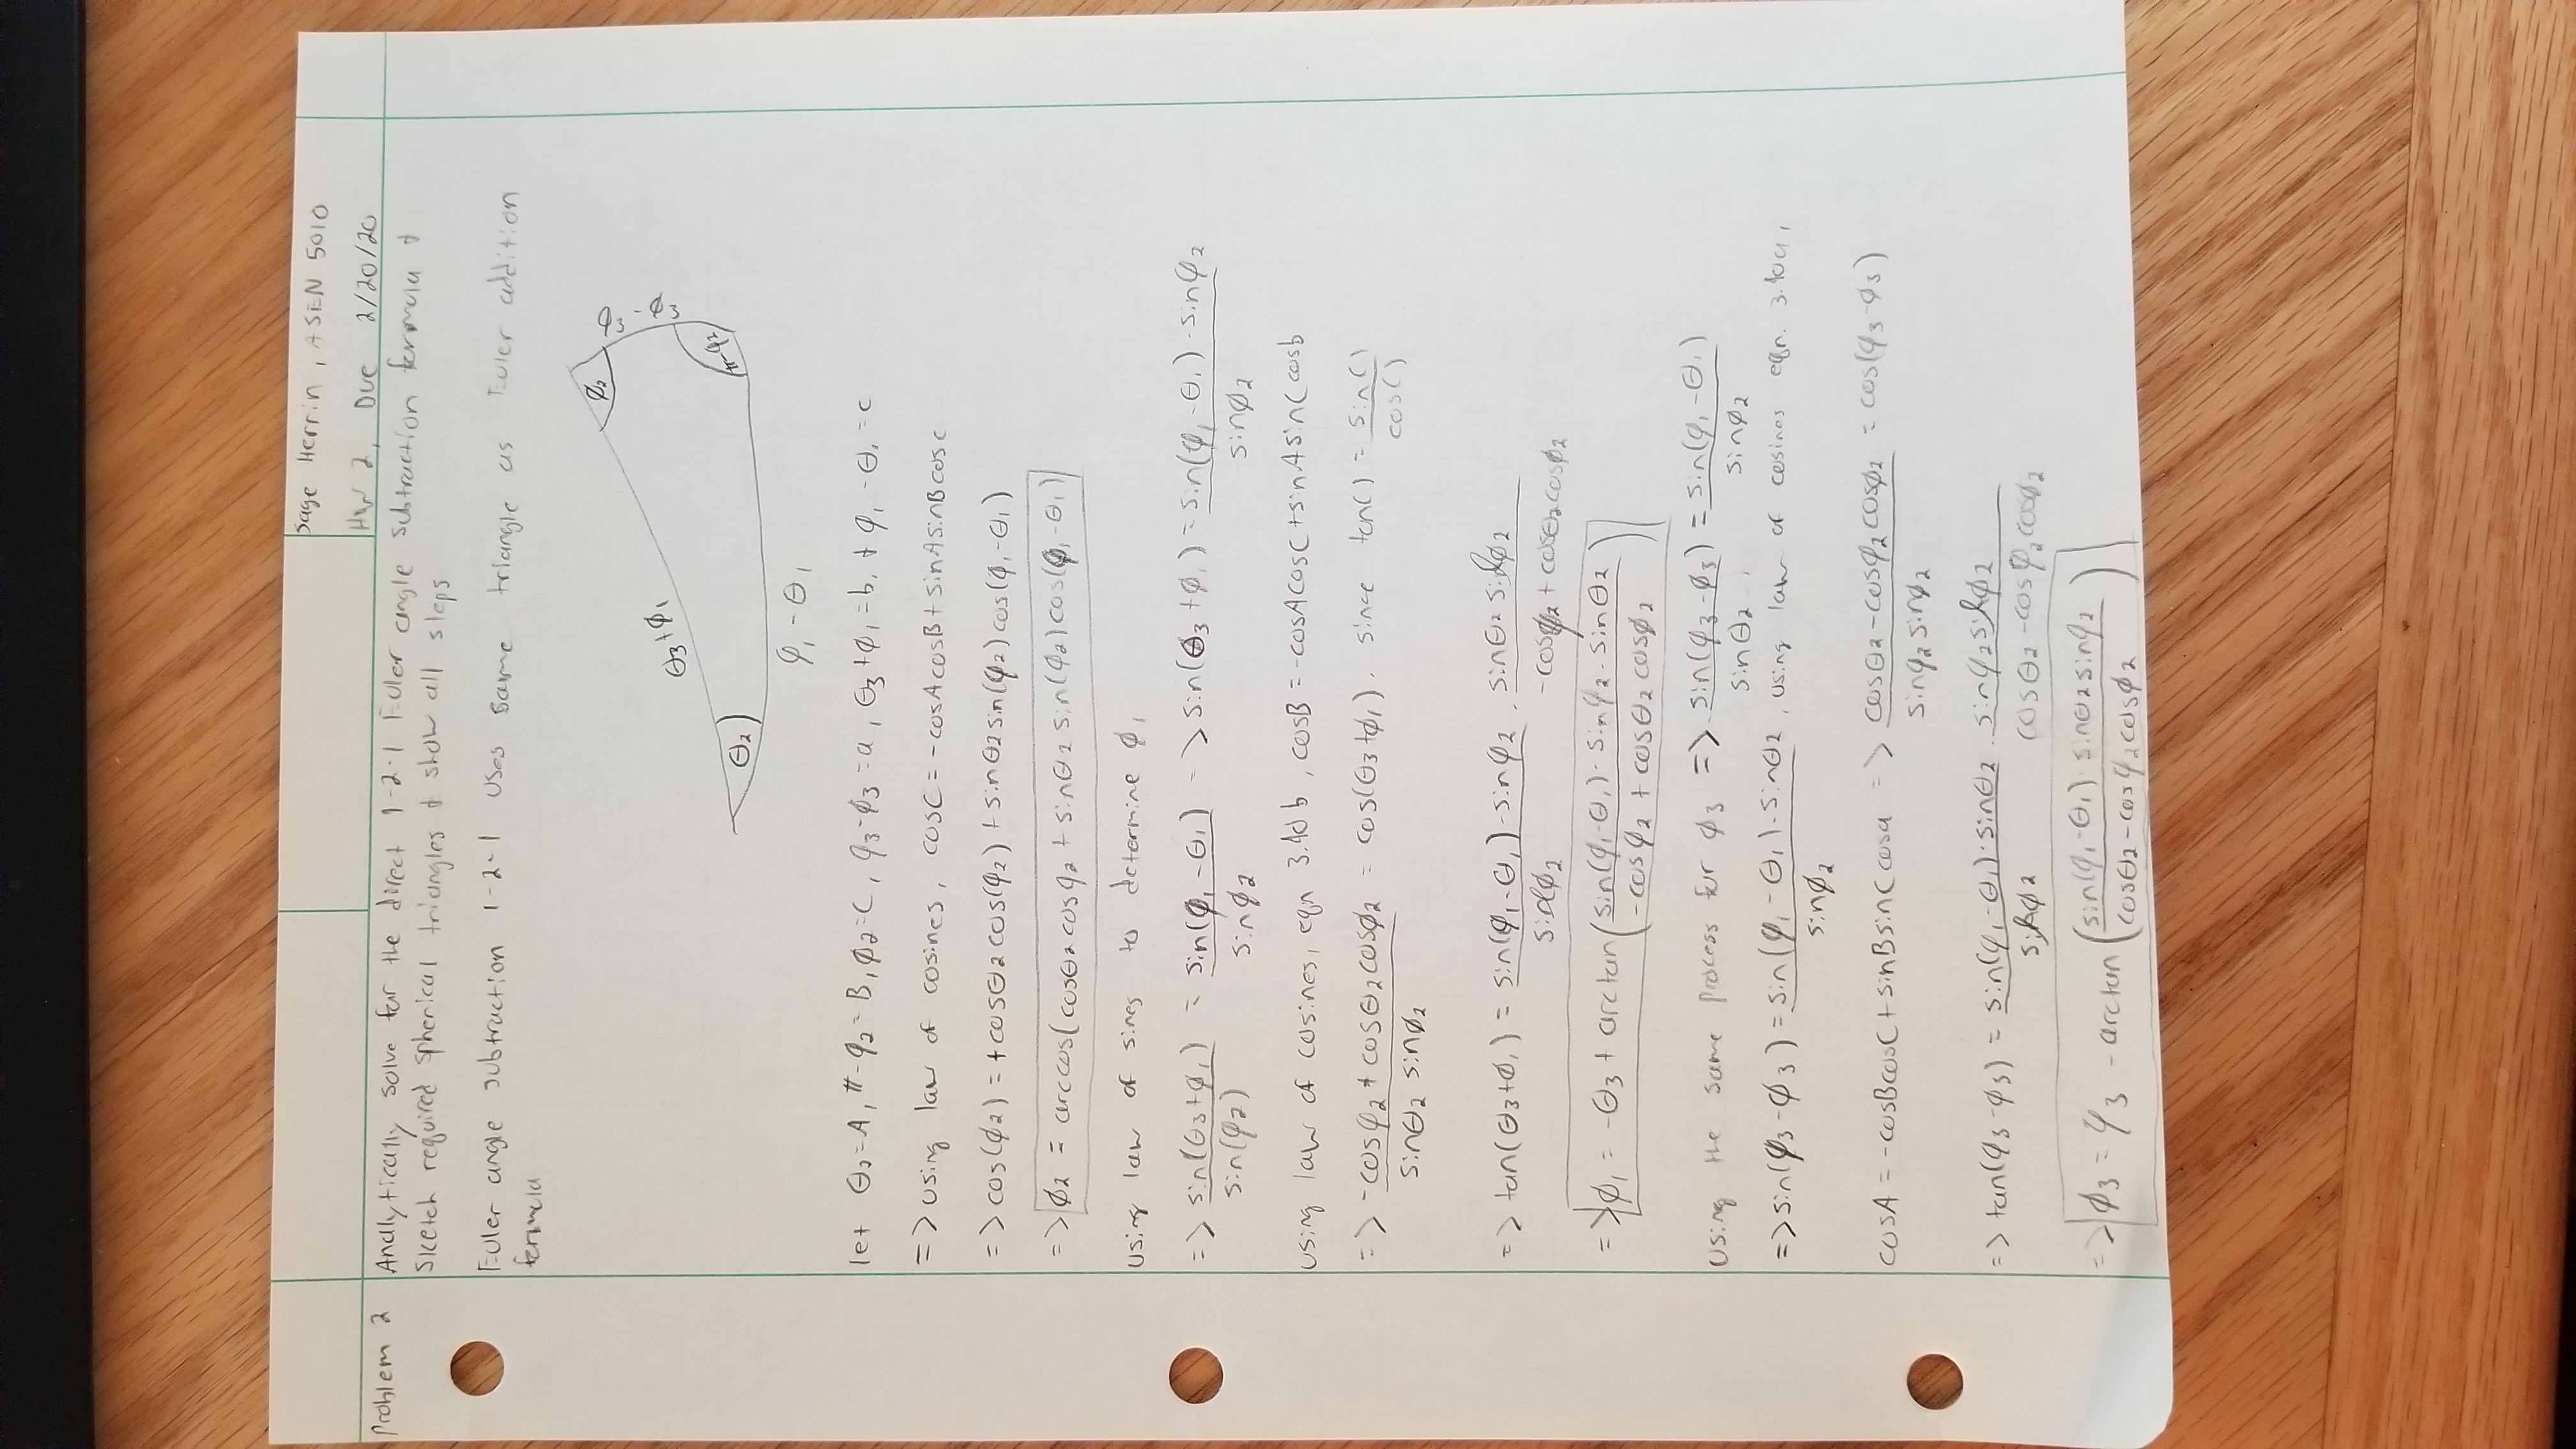 Sage Herrin, ASEN 5010
HW 2, Due 2/20/20
Problem 2
Analytically solve for the direct 1-2-1 Euler angle subtraction formula &
Sketch required spherical triangles & show all steps
Euler angle subtraction 1-2-1 uses same triangle as Euler addition
formula
ϕ₂
φ₃-ϕ₃
θ₃+ϕ₁
π-φ₂
θ₂
φ₁-θ₁
let θ₂=A, π-φ₂=B, ϕ₂=C, φ₃-ϕ₃=a, θ₃+ϕ₁=b, & φ₁-θ₁=c
=> using law of cosines, cosC = -cosAcosB+sinAsinBcosc
=> cos(ϕ₂) = +cosθ₂cos(φ₂) + sinθ₂sin(φ₂)cos(φ₁-θ₁)
=> ϕ₂ = arccos(cosθ₂cosφ₂ + sinθ₂ sin(φ₂)cos(φ₁-θ₁)
using law of sines to determine ϕ₁
=> sin(θ₃+ϕ₁)/sin(φ₂) = sin(φ₁-θ₁)/sinϕ₂ -> sin(θ₃+ϕ₁) = sin(φ₁-θ₁)·sinφ₂/sinϕ₂
using law of cosines, eqn 3.101b, cosB = -cosAcosC+sinAsinCcosb
=> -cosφ₂+cosθ₂cosϕ₂/sinθ₂ sinϕ₂ = cos(θ₃+ϕ₁). since tan() = sin()/cos()
=> tan(θ₃+ϕ₁) = sin(φ₁-θ₁)·sinφ₂/sinϕ₂ · sinθ₂ sinϕ₂/-cosφ₂+cosθ₂cosϕ₂
=> ϕ₁ = -θ₃ + arctan(sin(φ₁-θ₁)·sinφ₂·sinθ₂/-cosφ₂+cosθ₂cosϕ₂)
Using the same process for ϕ₃ => sin(φ₃-ϕ₃)/sinθ₂ = sin(φ₁-θ₁)/sinϕ₂
=> sin(φ₃-ϕ₃) = sin(φ₁-θ₁)·sinθ₂/sinϕ₂, using law of cosines eqn. 3.101a,
cosA = -cosBcosC+sinBsinCcosa => cosθ₂-cosφ₂cosϕ₂/sinφ₂sinϕ₂ = cos(φ₃-ϕ₃)
=> tan(φ₃-ϕ₃) = sin(φ₁-θ₁)·sinθ₂/sinϕ₂ · sinφ₂sinϕ₂/cosθ₂-cosφ₂cosϕ₂
=> ϕ₃ = φ₃ - arctan(sin(φ₁-θ₁)·sinθ₂sinφ₂/cosθ₂-cosφ₂cosϕ₂)